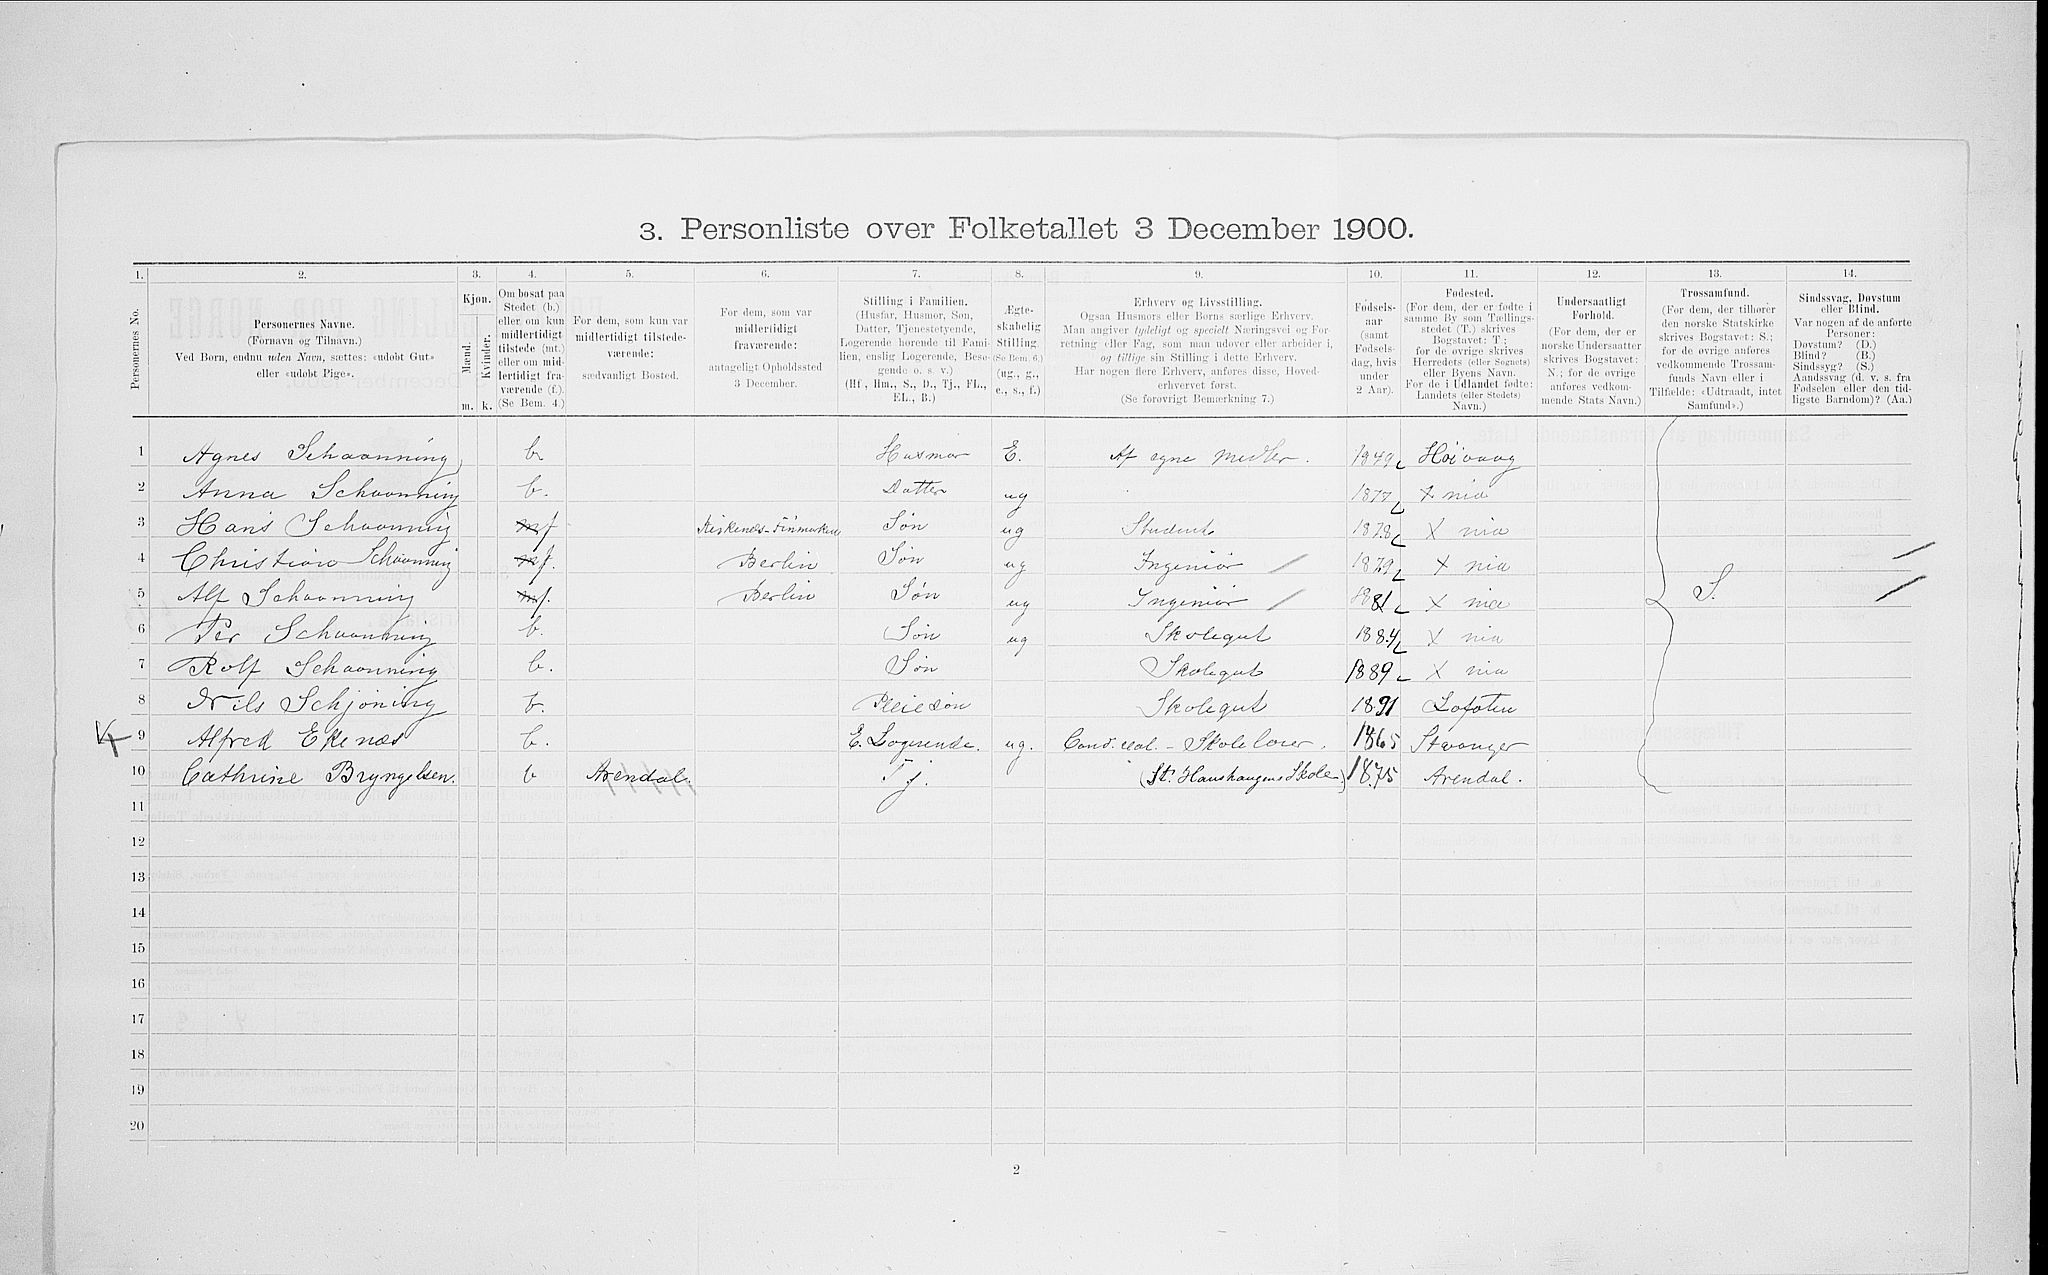 3. Personliste over Folketallet 3 December 1900.
1. 2. 3. 4. 5. 6. 7. 8. 9. 10. 11. 12. 13. 14.
Personernes No.
Personernes Navne.
(Fornavn og Tilnavn.)
Ved Børn, endnu uden Navn, sættes: «udøbt Gut»
eller «udøbt Pige».
Kjøn.
Mænd.
Kvinder.
m. k.
Om bosat paa
Stedet (b.)
eller om kun
midlertidigt
tilstede (mt.)
eller om mid-
lertidigt fra-
værende (f.).
(Se Bem. 4.)
For dem, som kun var
midlertidigt tilstede-
værende:
sædvanligt Bosted.
For dem, som var
midlertidigt
fraværende:
antageligt Opholdssted
3 December.
Stilling i Familien.
(Husfar, Husmor, Søn,
Datter, Tjenestetyende,
Logerende hørende til Fami-
lien, enslig Logerende, Besø-
gende o. s. v.)
(Hf., Hm., S., D., Tj., FL.,
EL., B.)
Ægte-
skabelig
Stilling.
(Se Bem. 6.)
(ug., g.,
e., s., f.)
Erhverv og Livsstilling.
Ogsaa Husmors eller Børns særlige Erhverv.
Man angiver tydeligt og specielt Næringsvei og For-
retning (eller Fag, som man udøver eller arbeider i,
og tillige sin Stilling i dette Erhverv.
Har nogen flere Erhverv, anføres disse, Hoved-
erhvervet først.
(Se forøvrigt Bemærkning 7.)
Fødsels-
aar
(samt
Fødsels-
dag, hvis
under
2 Aar).
Fødested.
(For dem, der er fødte i
samme By som Tællings-
stedet (T.) skrives
Bogstavet: T.;
for de øvrige skrives
Herredets (eller Sognets)
eller Byens Navn.
For de i Udlandet fødte:
Landets (eller Stedets)
Navn.)
Undersaatligt
Forhold.
(For dem, der er
norske Undersaatter
skrives Bogstavet:
N.; for de øvrige
anføres vedkom-
mende Stats Navn.)
Trossamfund.
(For dem, der tilhører
den norske Statskirke
skrives Bogstavet: S.;
for de øvrige anføres
vedkommende Trossam-
funds Navn eller i
Tilfælde: «Udtraadt, intet
Samfund».)
Sindssvag, Døvstum
eller Blind.
Var nogen af de anførte
Personer:
Døvstum? (D.)
Blind? (B.)
Sindssyg? (S.)
Aandssvag (d. v. s. fra
Fødselen eller den tid-
ligste Barndom)? (Aa.)
1 Agnes Schaanning b. Husmor E. Af egne Midler. 1849 Høivaag
2 Anna Schaanning b. Datter ug 1877 x nia
3 Hans Schaanning f Kirkenes-Finmarken Søn ug Student 1878 x nia
4 Christian Schaanning f. Berlin Søn ug Ingeniør 1879 x nia
5 Alf Schaanning f. Berlin Søn ug Ingeniør 1881 x nia S.
6 Per Schaanning b. Søn ug Skolegut 1884 x nia
7 Rolf Schaanning b. Søn Skolegut 1889 x nia
8 Nils Schjöning b. Pleiesøn Skolegut 1891 Lofoten
9 Alfred Ekenæs b. E. Logerende. ug. Cand. real. - Skolelærer. 1865 Stavanger
10 Cathrine Bryngelsen. b Arendal. Tj. (St. Hanshaugens Skole) 1875 Arendal.
11
12
13
14
15
16
17
18
19
20
2